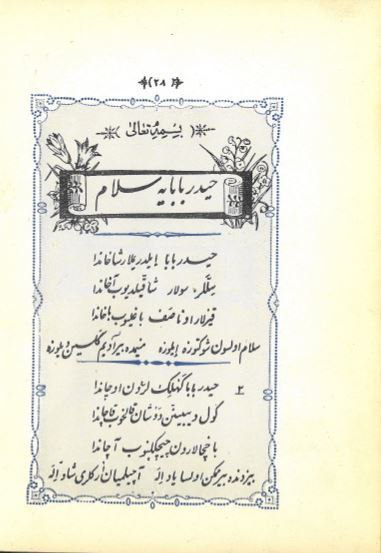 (۲۸)
بسمه تعالی
حیدربابایه سلام
حیدربابا ایلدیریملار شاخاندا
سئللر، سولار شاقیلدیوب آخاندا
قیزلار اونا صف باغلیوب باخاندا
سلام اولسون شوکتوزه ایلوزه منیمده بیر آدیم گلسین دیلوزه
۲ حیدربابا کهلیک لرون اوچاندا
کول دیبینن دوشان قالخوب قاچاندا
باخچالارون چیچکلنوب آچاندا
بیزدنده بیر ممکن اولسا یاد ائله آچیلمیان اُرکلری شاد ائله